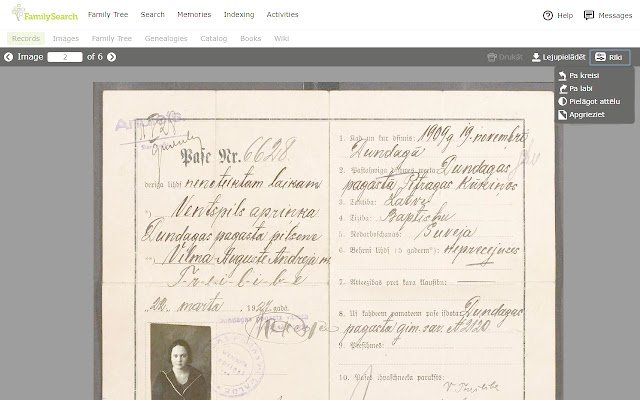 FamilySearch
Family Tree
Search
Memories
Indexing
Activities
Help
Messages
Records
Images
Family Tree
Genealogies
Catalog
Books
Wiki
Image 2 of 6
Drukāt
Lejupielādēt
Rīki
Pa kreisi
Pa labi
Pielāgot attēlu
Apgrieziet
Pase Nr. 6628
derīga līdz nenoteiktam laikam
Ventspils apriņķa
Dundagas pagasta pilsone
Vilma Auguste Andreja m.
Freibibe
22. marta
1. Kad un kur dzimis: 1909 g. 19. novembrī
Dundagā
2. Pastāvīga dzīves vieta: Dundagas
pagasta Pitragas
3. Tautība: Latv.
4. Ticība: Baptistu
5. Nodarbošanās: Šuvēja
6. Neprecējusies
7. Attiecības pret kara klausību:
8. Uz kādiem pamatiem pase izdota: Dundagas
pagasta
9. Piezīmes:
10. Pases īpašnieka paraksts: